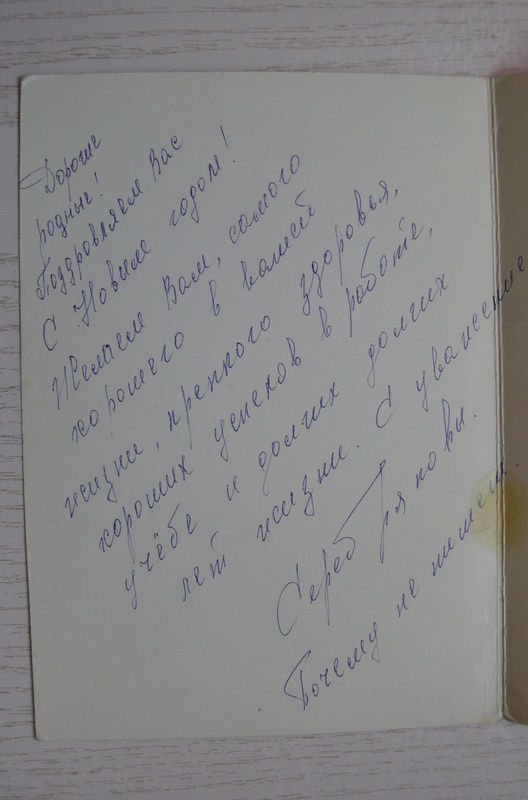 Дорогие
родные!
Поздравляем Вас
С Новым годом!
Желаем Вам, самого
хорошего в вашей
жизни, крепкого здоровья,
хороших успехов в работе,
учёбе и долгих долгих
лет жизни. С уважение
Серебряковы.
Почему не пишете.